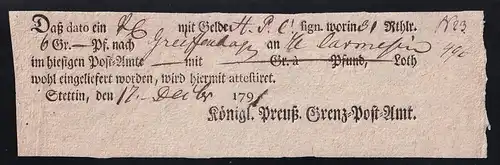 Daß dato ein mit Gelde H. P. C. sign. worin 31 Rthlr. No 23
6 Gr. – Pf. nach Greiffenhagen an
im hiesigen Post-Amte mit Gr. à Pfund, Loth
wohl eingeliefert worden, wird hiermit attestiret.
Stettin, den 17. Decbr 179
Königl. Preuß. Grenz-Post-Amt.